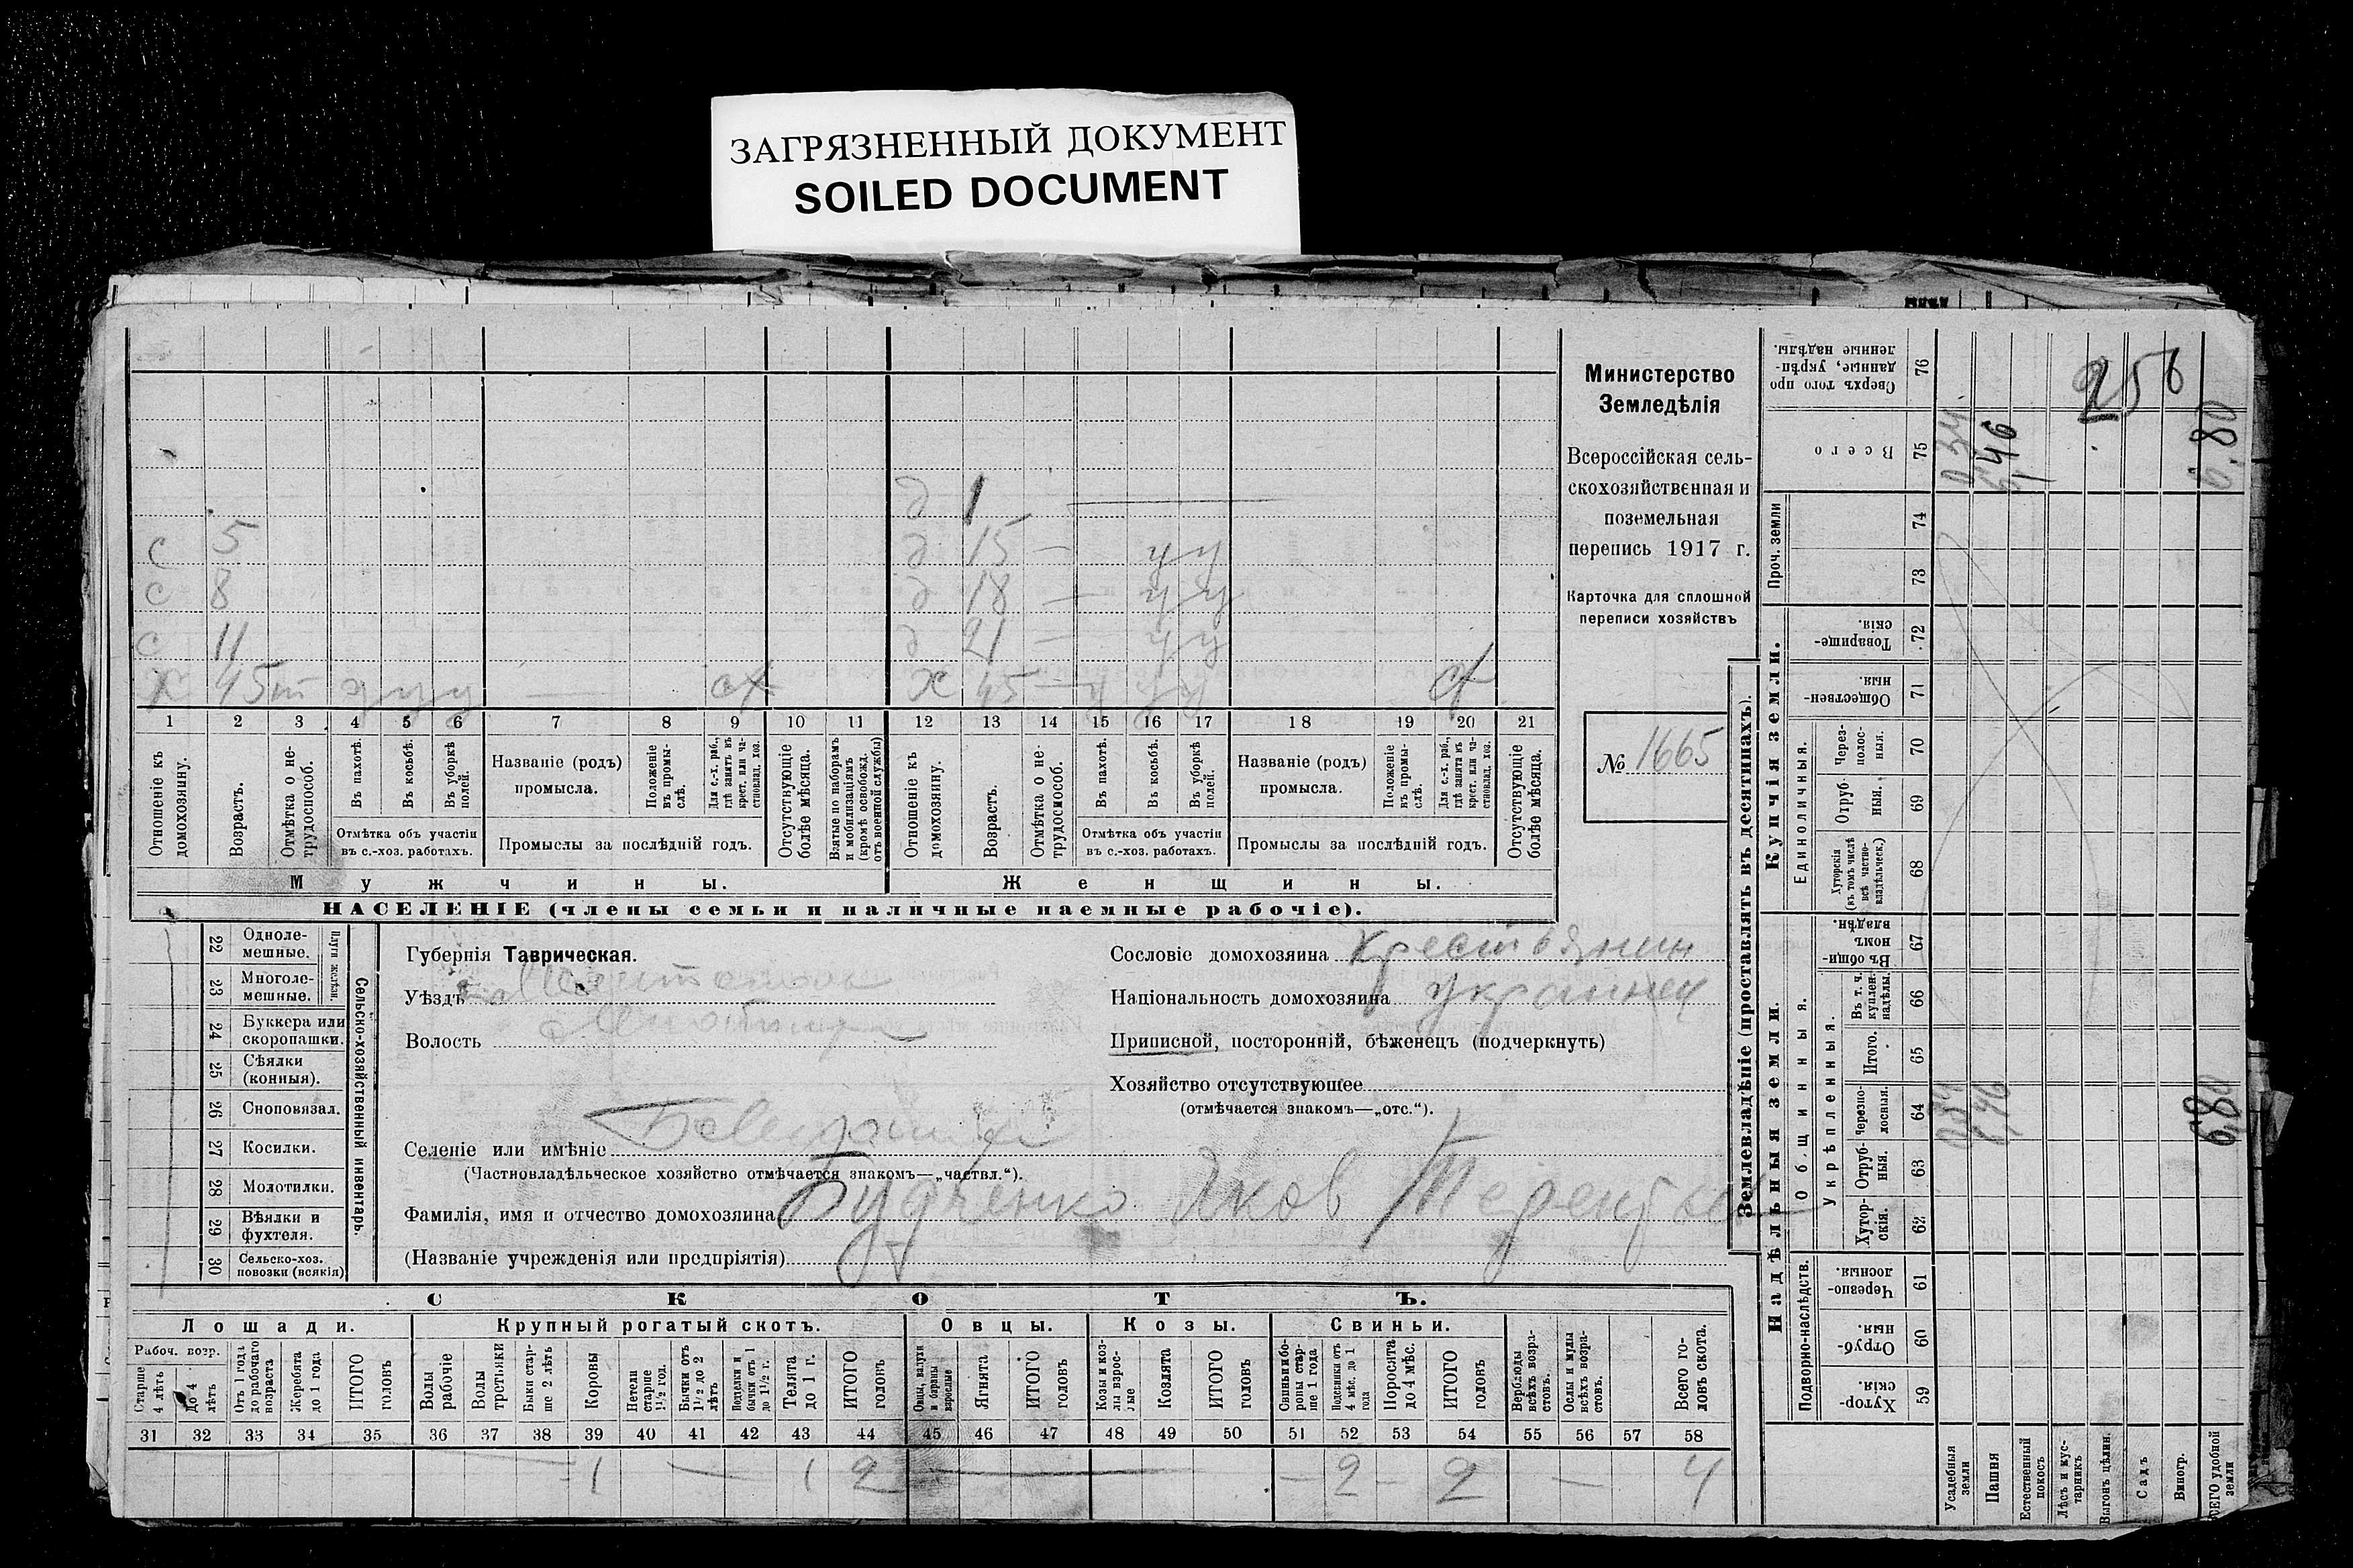 ЗАГРЯЗНЕННЫЙ ДОКУМЕНТ
SOILED DOCUMENT
д 1
с 5 д 15 — у у
с 8 д 18 — у у
с 11 д 21 — у у
х 45 х 45
1 2 3 4 5 6 7 8 9 10 11 12 13 14 15 16 17 18 19 20 21
Отношеніе къ домохозяину.
Возрастъ.
Отмѣтка о не-трудоспособ.
Въ пахотѣ.
Въ косьбѣ.
Въ уборкѣ полей.
Отмѣтка объ участіи
въ с.-хоз. работахъ.
Названіе (родъ)
промысла.
Положеніе въ промы-слѣ.
Для с.-х. раб., гдѣ занятъ въ крест. или ча-стновлад. хоз.
Промыслы за послѣдній годъ.
Отсутствующіе болѣе мѣсяца.
Взятые по наборамъ и мобилизаціямъ (кромѣ освобожд. отъ военной службы)
Отношеніе къ домохозяину.
Возрастъ.
Отмѣтка о не-трудоспособ.
Въ пахотѣ.
Въ косьбѣ.
Въ уборкѣ полей.
Отмѣтка объ участіи
въ с.-хоз. работахъ.
Названіе (родъ)
промысла.
Положеніе въ промы-слѣ.
Для с.-х. раб., гдѣ занята въ крест. или ча-стновлад. хоз.
Промыслы за послѣдній годъ.
Отсутствующіе болѣе мѣсяца.
Мужчины.
Женщины.
НАСЕЛЕНІЕ (члены семьи и наличные наемные рабочіе).
Министерство
Земледѣлія
Всероссійская сель-
скохозяйственная и
поземельная
перепись 1917 г.
Карточка для сплошной
переписи хозяйствъ
№ 1665
22 Одноле-мешные.
23 Многоле-мешные.
Плуги желѣзн.
24 Буккера или скоропашки.
25 Сѣялки (конныя).
26 Сноповязал.
27 Косилки.
28 Молотилки.
29 Вѣялки и фухтеля.
30 Сельско-хоз. повозки (всякія)
Сельско-хозяйственный инвентарь.
Губернія Таврическая.
Уѣздъ
Волость
Селеніе или имѣніе
(Частновладѣльческое хозяйство отмѣчается знакомъ—„частвл.“).
Фамилія, имя и отчество домохозяина Яков
(Названіе учрежденія или предпріятія)
Сословіе домохозяина крестьянин
Національность домохозяина украинец
Приписной, посторонній, бѣженецъ (подчеркнуть)
Хозяйство отсутствующее
(отмѣчается знакомъ—„отс.“).
СКОТЪ.
Лошади.
Рабоч. возр.
Старше 4 лѣтъ
До 4 лѣтъ
Отъ 1 года до рабочаго возраста
Жеребята до 1 года
ИТОГО головъ
Крупный рогатый скотъ.
Волы рабочіе
Волы третьяки
Быки стар-ше 2 лѣтъ
Коровы
Нетели старше 1½ год.
Бычки отъ 1½ до 2 лѣтъ
Подтелки и бычки отъ 1 до 1½ г.
Телята до 1 г.
ИТОГО головъ
Овцы.
Овцы, валухи и бараны взрослые
Ягнята
ИТОГО головъ
Козы.
Козы и коз-лы взрос-лые
Козлята
ИТОГО головъ
Свиньи.
Свиньи и бо-ровы стар-ше 1 года
Подсвинки отъ 4 мѣс. до 1 года
Поросята до 4 мѣс.
ИТОГО головъ
Верблюды всѣхъ возра-стовъ.
Ослы и мулы всѣхъ возра-стовъ.
Всего го-ловъ скота.
31 32 33 34 35 36 37 38 39 40 41 42 43 44 45 46 47 48 49 50 51 52 53 54 55 56 57 58
1 — 1 2 — — 2 — 2 — 4
Землевладѣніе (проставлять въ десятинахъ).
Надѣльныя земли.
Купчія земли.
Подворно-наслѣдств.
Общинныя.
Укрѣпленныя.
Единоличныя.
Проч. земли
Хутор-скія. 59
Отруб-ныя. 60
Черезпо-лосныя. 61
Хутор-скія. 62
Отруб-ныя. 63
Черезпо-лосныя. 64
Итого. 65
Въ т. ч. куплен. надѣлы. 66
Въ общин-номъ владѣн. 67
Хуторскія (въ томъ числѣ всѣ частно-владѣльческ.) 68
Отруб-ныя. 69
Через-полос-ныя. 70
Обществен-ныя. 71
Товарище-скія. 72
73
74
Всего 75
Сверхъ того про-данные, укрѣп-ленные надѣлы. 76
Усадебныя земли
Пашня
Естественный покосъ
Лѣсъ и кус-тарникъ
Выгонъ цѣлин.
Садъ
Виногр.
ВСЕГО удобной земли
6,80
6,80